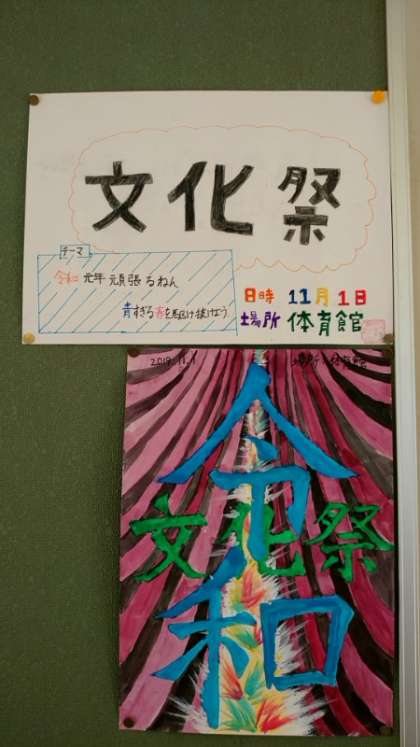 文化祭
テーマ
令和元年頑張るねん
青すぎる春を駆け抜けよう
日時 11月1日
場所 体育館
2019.11.1 場所:体育館
令和
文化祭